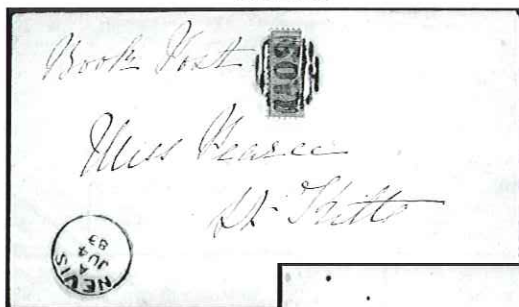 Book Post
A09
Miss Pearce
St. Kitts
NEVIS
A
JU 4
83